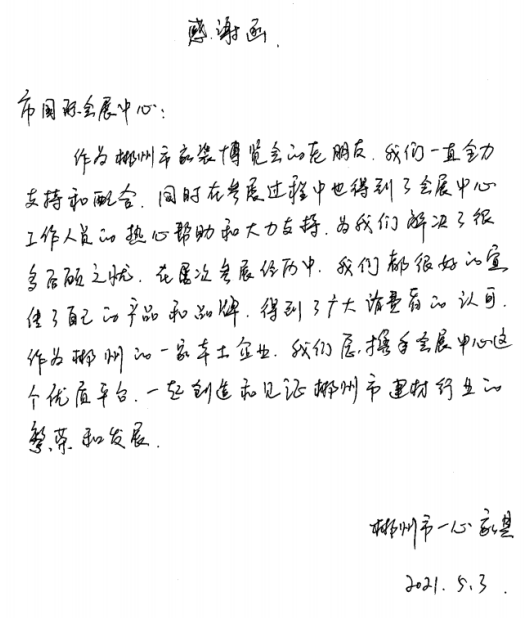 感谢函.
市国际会展中心:
作为郴州市家装博览会的老朋友.我们一直全力
支持和配合.同时在参展过程中也得到了会展中心
工作人员的热心帮助和大力支持.为我们解决了很
多后顾之忧.在屡次参展经历中.我们都很好的宣
传了自己的产品和品牌.得到了广大消费者的认可.
作为郴州的一家本土企业.我们愿携手会展中心这
个优质平台.一起创造和见证郴州市建材行业的
繁荣和发展.
郴州市一心家具
2021.5.3.